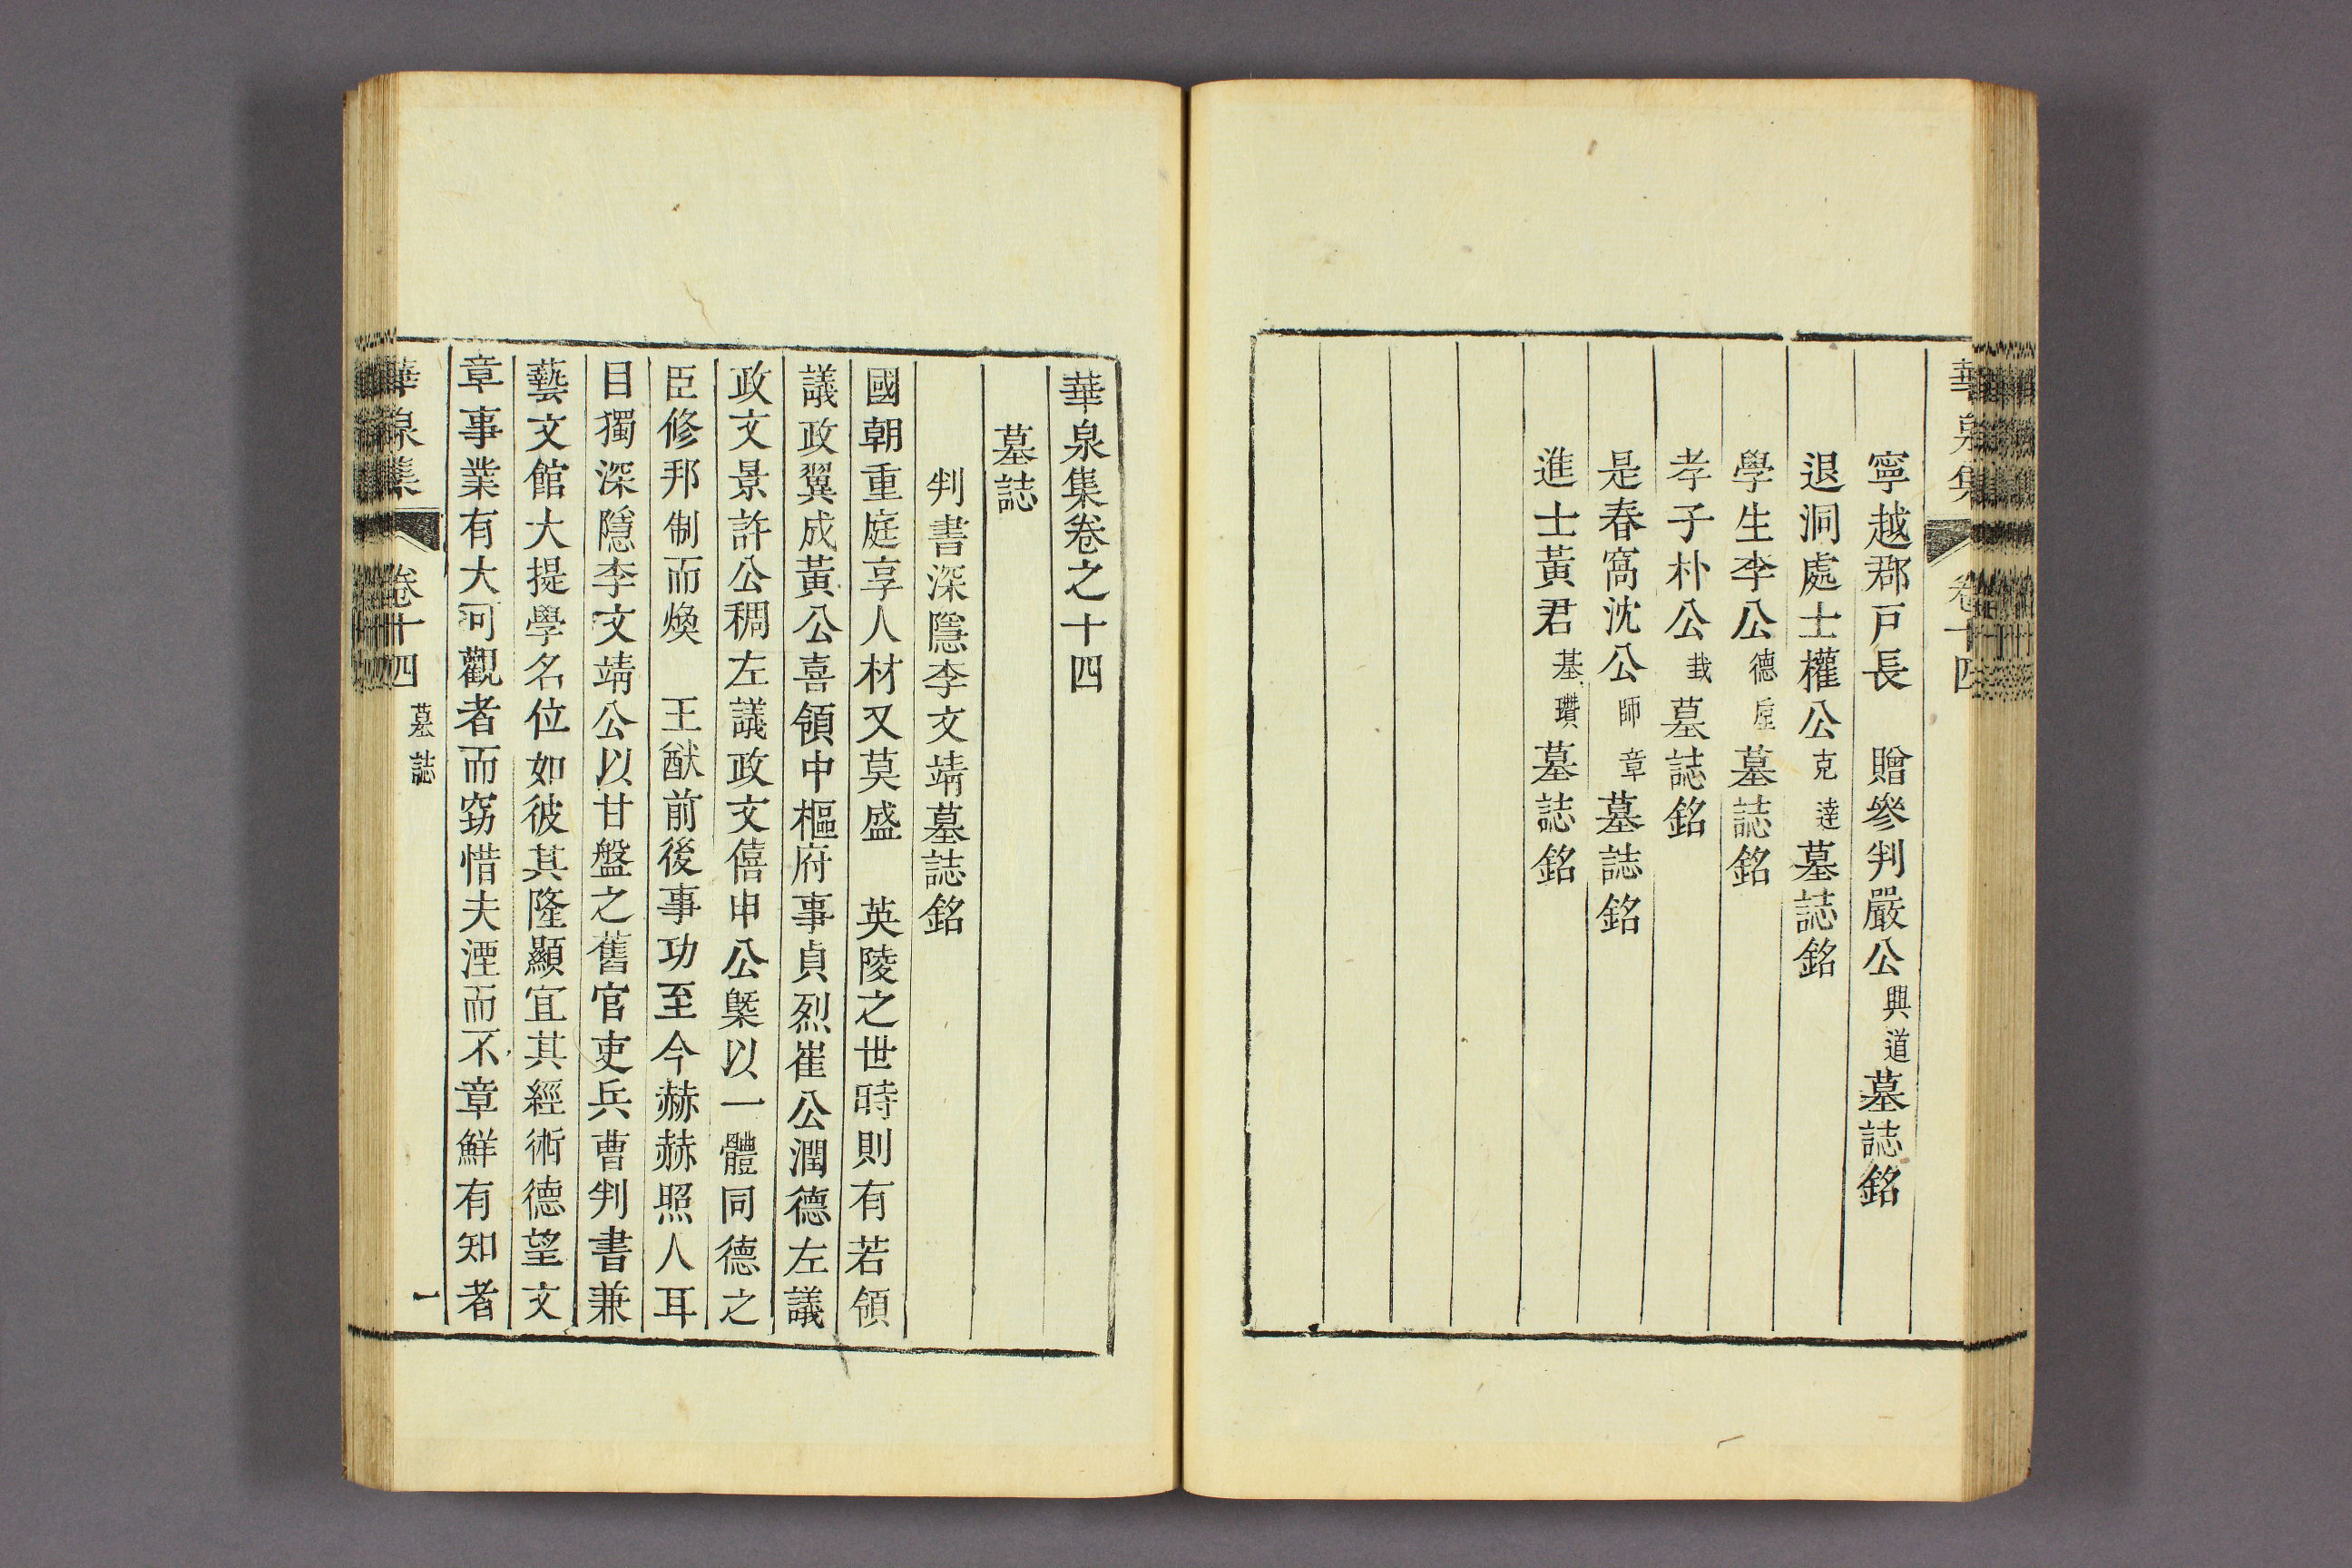 華泉集 卷十四
寧越郡戶長 贈參判嚴公興道墓誌銘
退洞處士權公克達墓誌銘
學生李公德垕墓誌銘
孝子朴公栽墓誌銘
是春窩沈公師章墓誌銘
進士黃君基瓚墓誌銘
華泉集卷之十四
墓誌
判書深隱李文靖墓誌銘
國朝重庭享人材又莫盛 英陵之世時則有若領
議政翼成黃公喜領中樞府事貞烈崔公潤德左議
政文景許公稠左議政文僖申公槩以一體同德之
臣修邦制而煥 王猷前後事功至今赫赫照人耳
目獨深隱李文靖公以甘盤之舊官吏兵曹判書兼
藝文館大提學名位如彼其隆顯宜其經術德望文
章事業有大可觀者而窃惜夫湮而不章鮮有知者
華泉集 卷十四 墓誌 一